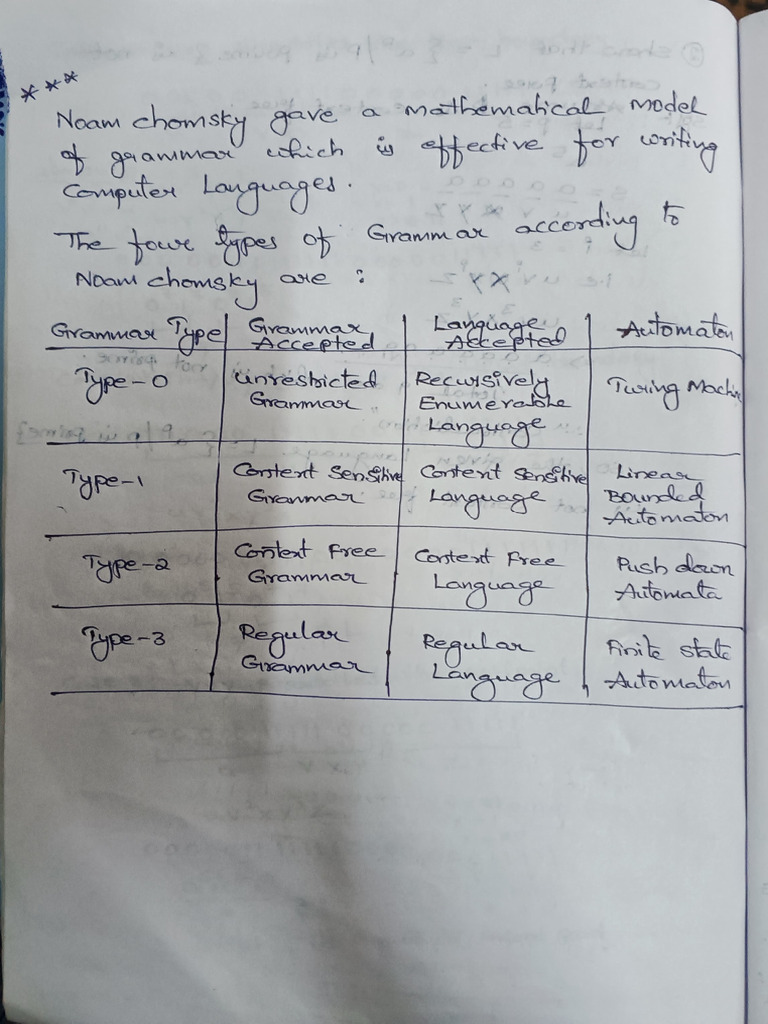 ***
Noam chomsky gave a mathematical model
of grammar which is effective for writing
Computer Languages.
The four types of Grammar according to
Noam chomsky are :
Grammar Type | Grammar Accepted | Language Accepted | Automaton
Type-0 | unrestricted Grammar | Recursively Enumerable Language | Turing Machine
Type-1 | Context Sensitive Grammar | Content Sensitive Language | Linear Bounded Automaton
Type-2 | Context Free Grammar | Context Free Language | Push down Automata
Type-3 | Regular Grammar | Regular Language | Finite state Automaton